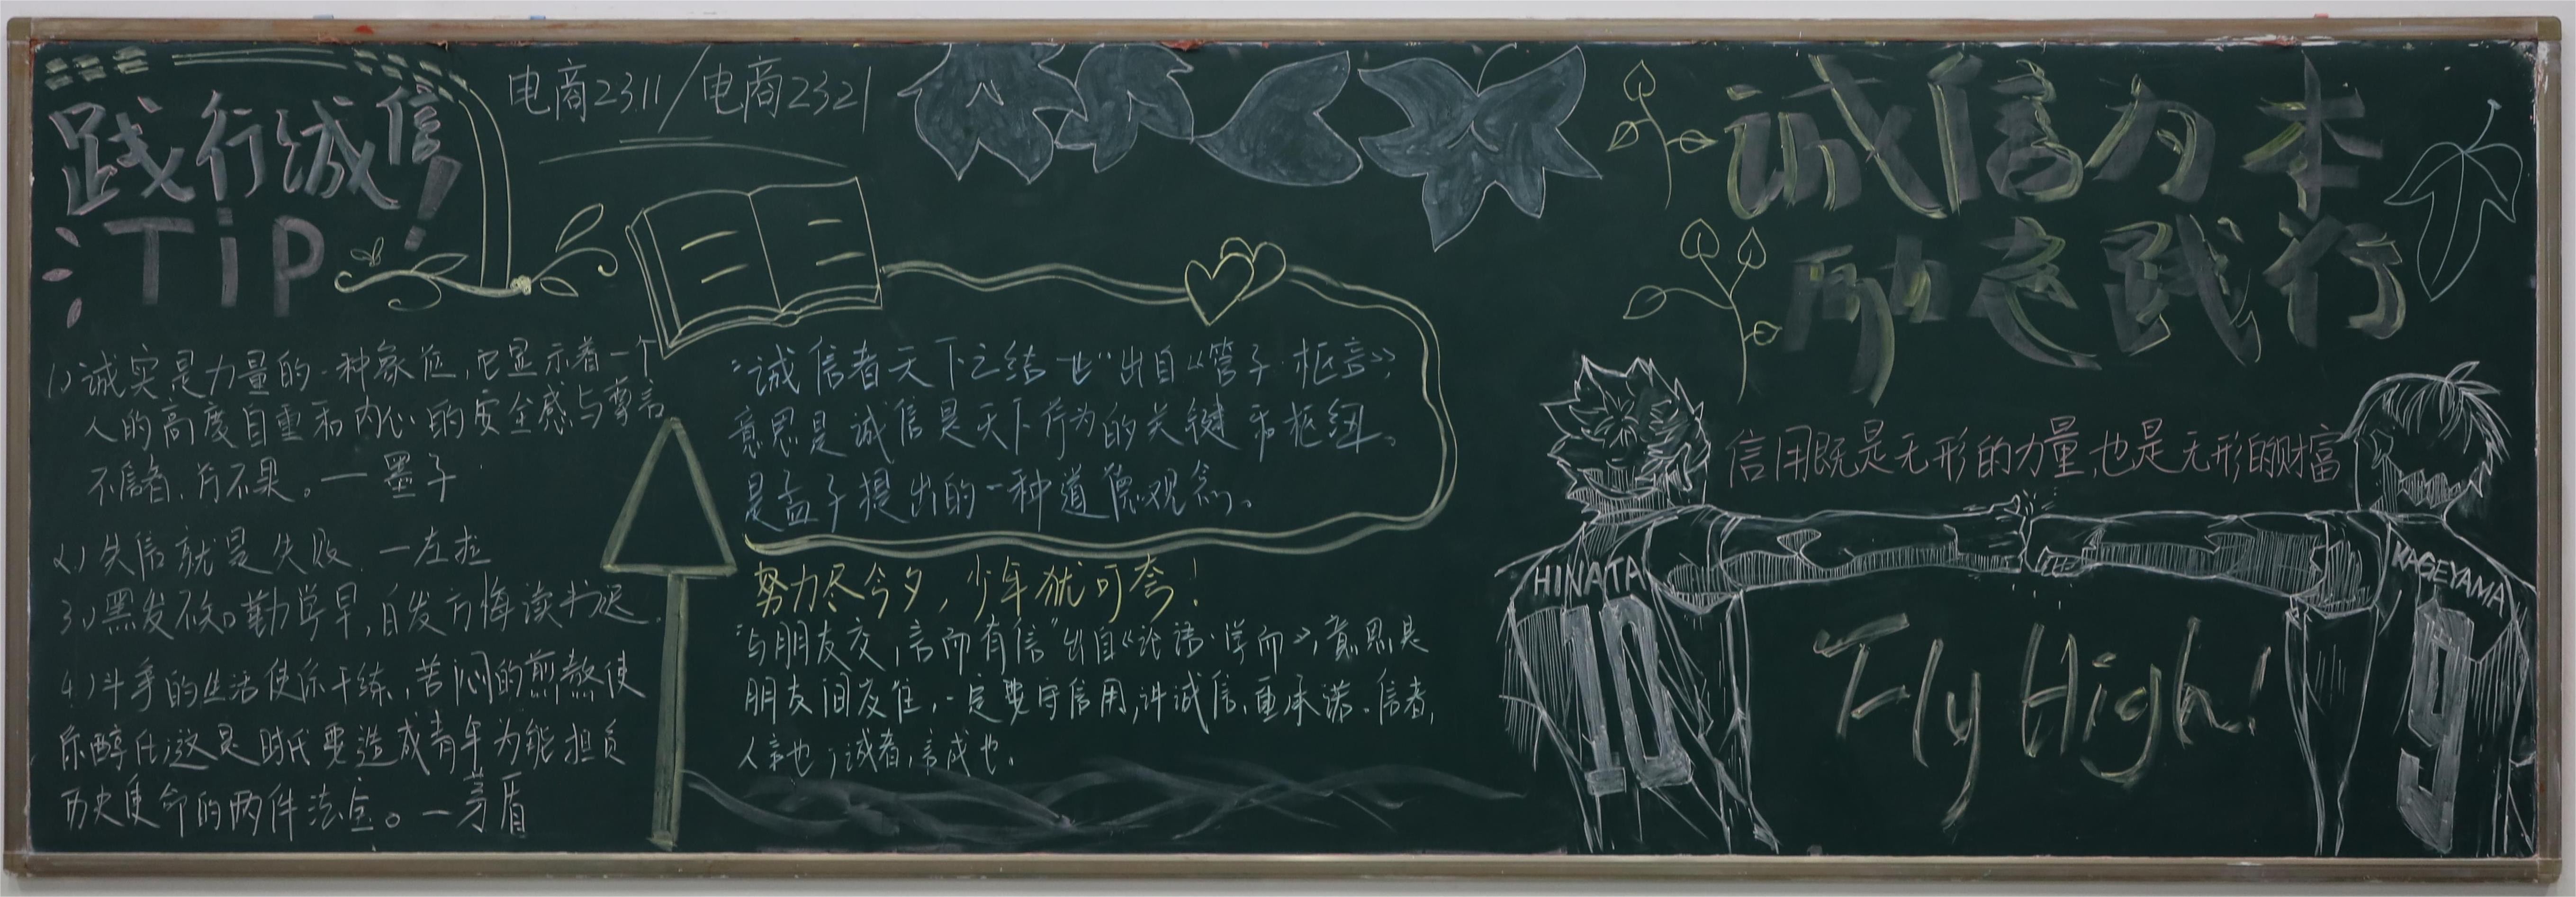 践行诚信!
TiP
电商2311/电商2321
1.)诚实是力量的一种象征,它显示着一个
人的高度自重和内心的安全感与尊言
不信者,行不果。—墨子
2.)失信就是失败 —左拉
3.)黑发不知勤学早,白发方悔读书迟.
4.)斗争的生活使你干练,苦闷的煎熬使
你醇化;这是时代要造成青年为能担负
历史使命的两件法宝。—茅盾
“诚信者天下之结也”出自《管子·枢言》,
意思是诚信是天下行为的关键和枢纽。
是孟子提出的一种道德观念。
努力尽今夕,少年犹可夸!
“与朋友交,言而有信”出自《论语·学而》,意思是
朋友间交往,一定要守信用,讲诚信、重承诺。信者,
人言也;诚者,言成也。
诚信为本
励志践行
信用既是无形的力量,也是无形的财富
HINATA
10
KAGEYAMA
9
Fly High!